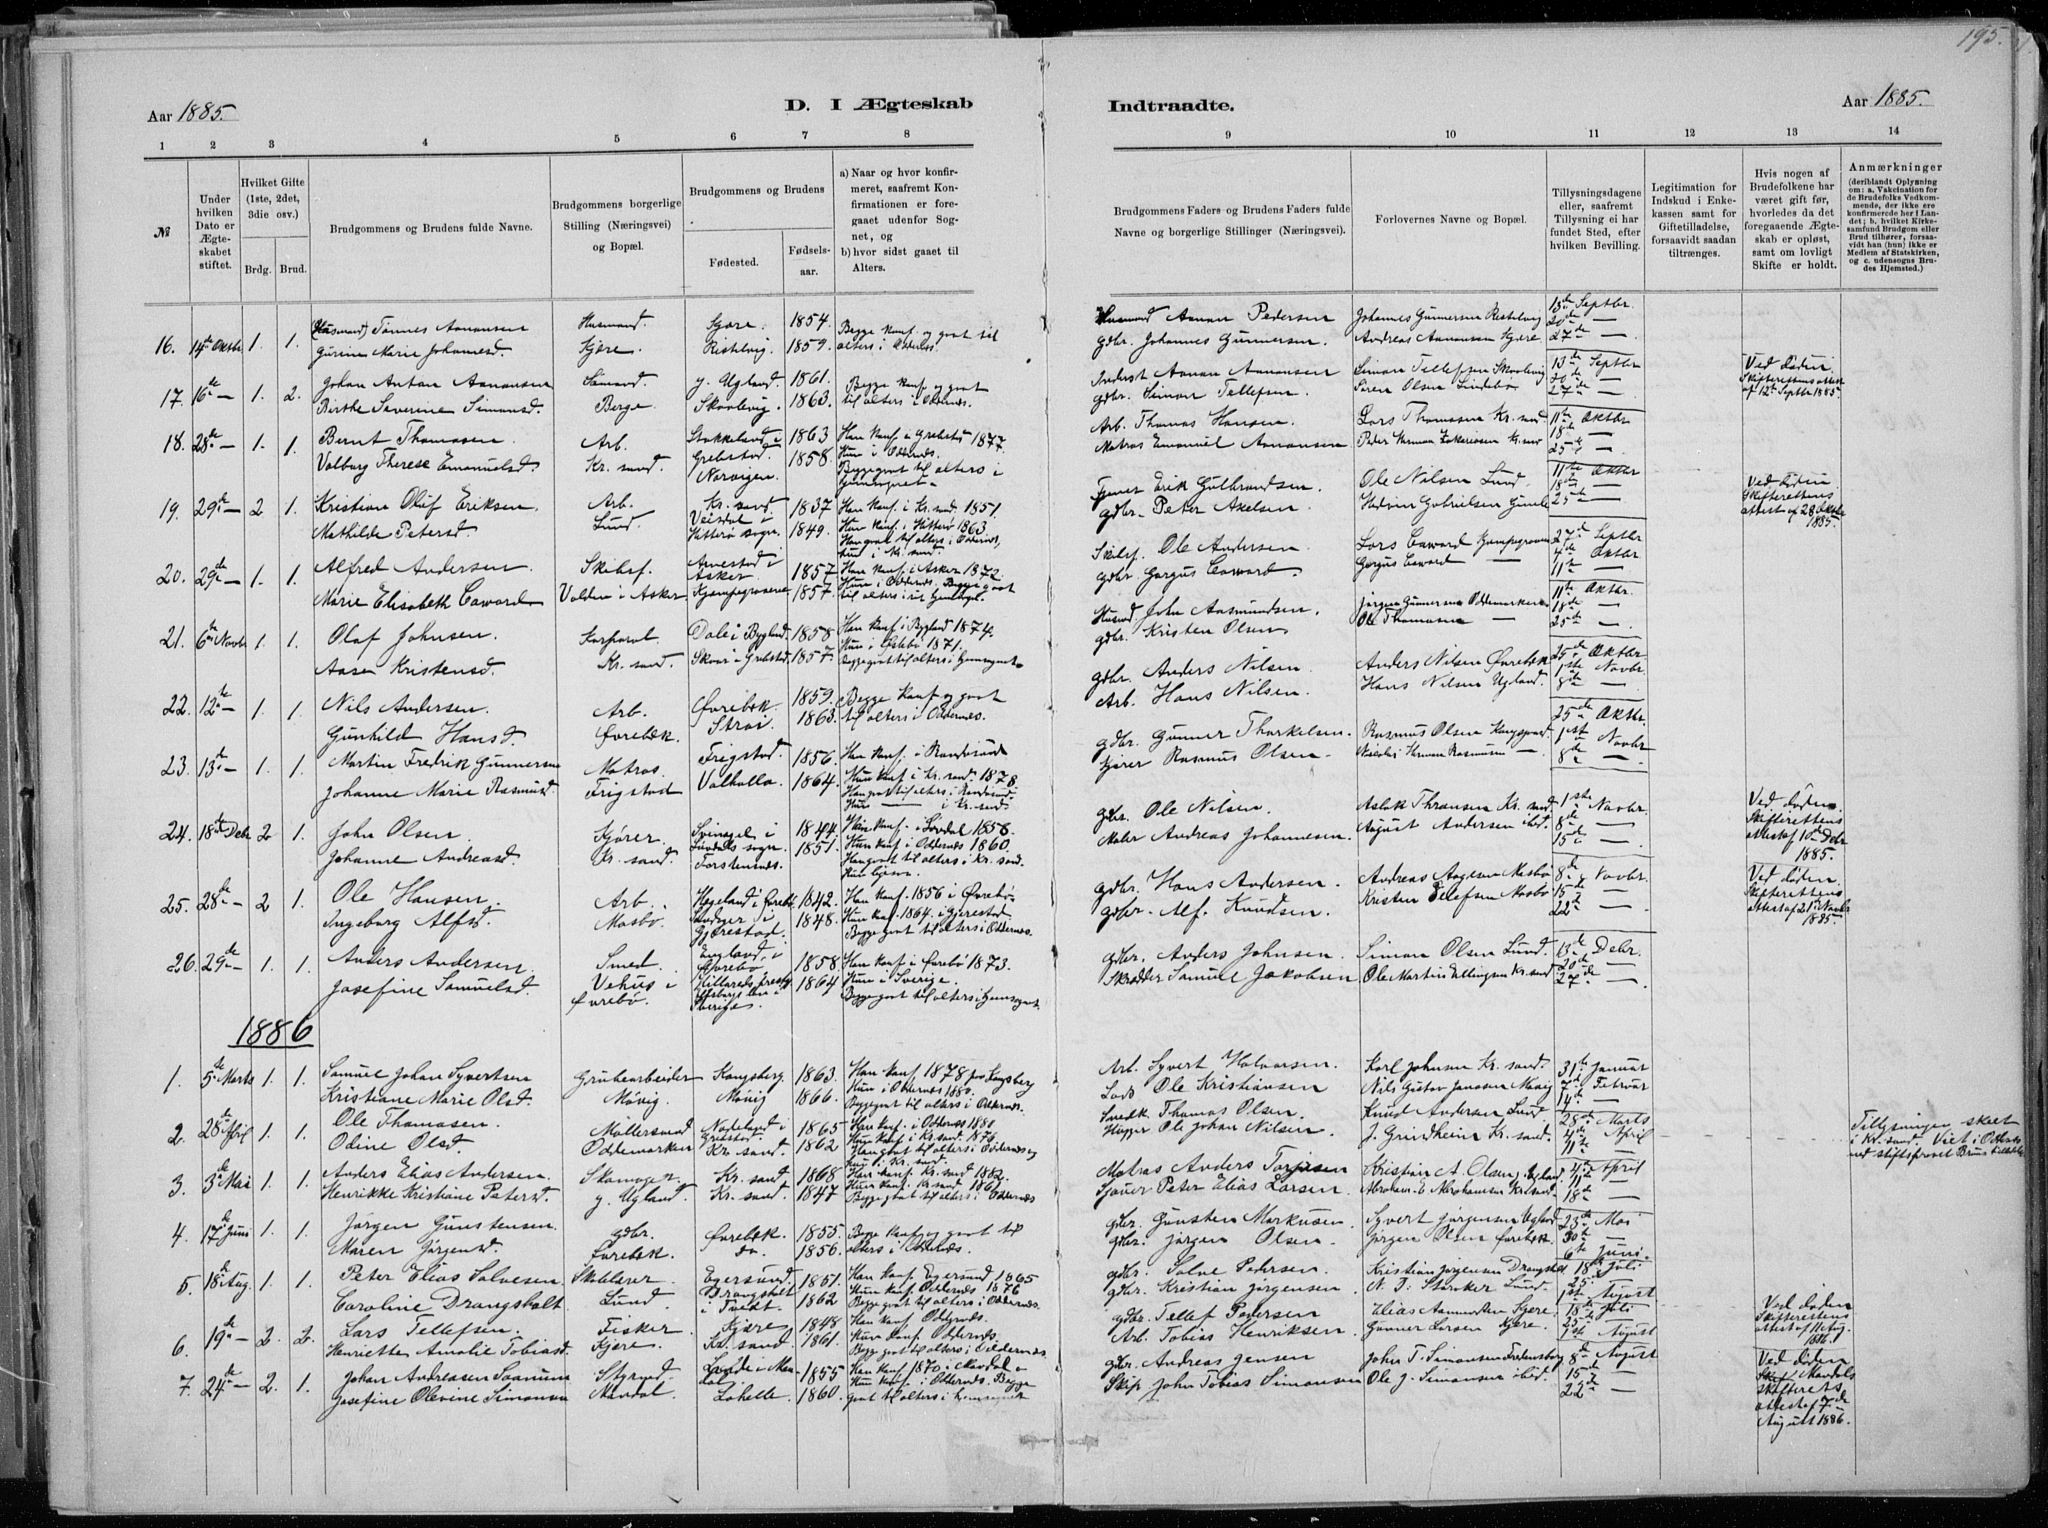 195.
Aar 1885.
D. I Ægteskab
Indtraadte.
Aar 1885.
1 2 3 4 5 6 7 8 9 10 11 12 13 14
№
Under hvilken Dato er Ægteskabet stiftet.
Hvilket Gifte (1ste, 2det, 3die osv.)
Brdg. Brud.
Brudgommens og Brudens fulde Navne.
Brudgommens borgerlige Stilling (Næringsvei) og Bopæl.
Brudgommens og Brudens
Fødested.
Fødselsaar.
a) Naar og hvor konfirmeret, saafremt Konfirmationen er foregaaet udenfor Sognet, og
b) hvor sidst gaaet til Alters.
Brudgommens Faders og Brudens Faders fulde Navne og borgerlige Stillinger (Næringsvei).
Forlovernes Navne og Bopæl.
Tillysningsdagene eller, saafremt Tillysning ei har fundet Sted, efter hvilken Bevilling.
Legitimation for Indskud i Enkekassen samt for Giftetilladelse, forsaavidt saadan tiltrænges.
Hvis nogen af Brudefolkene har været gift før, hvorledes da det foregaaende Ægteskab er opløst, samt om lovligt Skifte er holdt.
Anmærkninger (deriblandt Oplysning om: a. Vakcination for de Brudefolks Vedkommende, der ikke ere konfirmerede her i Landet; b. hvilket Kirkesamfund Brudgom eller Brud tilhører, forsaavidt han (hun) ikke er Medlem af Statskirken, og c. udensogns Brudes Hjemsted.)
16. 14de Oktbr 1. 1. (Husmand) Tønnes Aanansen Husmand. Kjære. 1854. Begge konf. og gaat til Husmand Aanan Pedersen Johannes Gunnersen Ristelvig 13de Septbr.
Gurine Marie Johannesd. Kjære. Ristelvig 1859. alters i Oddernæs. gdbr. Johannes Gunnersen. Andreas Aanansen Kjære. 20de — 27de —
17. 16de — 1. 2. Johan Anton Aanansen Sømand. y. Ugland. 1861. Begge konf. og gaat Inderst Aanan Aanansen Simon Tellefsen Skoolevig 13de Septbr Ved døden.
Birthe Severine Simonsd. Berge. Skoolevig 1863. til alters i Oddernæs. gdbr. Simon Tellefsen. Søren Olsen Lindebø 20de — 27de — Skifterettens attest af 12te Septbr 1885.
18. 28de — 1. 1. Bernt Thomasen. Arb. Stokkeland i Grebstad 1863 Han konf. i Grebstad 1877. Arb. Thomas Hansen. Lars Thomassen Kr.sand 11te Oktbr
Valborg Therese Emanuelsd. Kr. sand. Norvigen. 1858. Hun i Oddernæs. Begge gaat til alters i Matros Emanuel Aanansen Peter Herman Zakariasen Kr.sand 18de — 25de —
19. 29de — 2 1. Kristian Oluf Eriksen. Arb. Kr. sand. 1837 Han konf. i Kr. sand. 1851. Erik Gulbrandsen. Ole Nilsen Lund. 11te Oktbr Ved døden
Mathilde Petersd. Lund. Veisdal i Hitterø sogn. 1849. Hun konf. i Hitterø 1863. Han gaat til alters i Oddernæs, hun i Kr. sand. gdbr. Peter Akelsen. 18de — 25de — Skifterettens attest af 28 Oktbr 1885.
20. 29de — 1. 1. Alfred Andersen. Skibsf. Arnestad i Asker 1857 Han konf. i Asker 1872. Skibsf. Ole Andersen. Lars Caward 27de Septbr
Marie Elisabeth Caward Valden i Asker 1857. Hun i Oddernæs. Begge gaat til alters gdbr. Gørgus Caward. Gørgus Caward — 4de Oktbr 11te —
21. 6te Novbr 1. 1. Olaf Johnsen. Korporal Dale i Bygland. 1858 Han konf. i Bygland 1874. John Aasmundsen. Jørgen Gunnersen Oddemarken 11te Oktbr.
Aase Kristensd. Kr. sand. Grebstad. 1857. Hun i 1871. Begge gaat til alters i gdbr. Kristen Olsen Ole Thomasen — 18de — 25de —
22. 12te — 1. 1. Nils Andersen. Arb. Øvrebæk 1859. Begge konf. og gaat gdbr. Anders Nilsen. Anders Nilsen Øvrebæk 25de Oktbr
Gunhild Hansd. Øvrebæk. Strai. 1863. til alters i Oddernæs. Arb. Hans Nilsen. Hans Nilsen Ugland. 1ste Novbr. 8de —
23. 13de — 1. 1. Martin Fredrik Gunnersen Matros. Frigstad. 1856. Han konf. i Randøsund gdbr. Gunner Thorkelsen. Rasmus Olsen Kongsgaard 25de Oktbr
Johanne Marie Rasmusd. Frigstad Valhalla. 1864. Hun konf. i Kr. sand 1878. Han gaat til alters i Randøsund. Hun — i Kr. sand. Kjører Rasmus Olsen. Nicolai Herman Rasmusen — 1ste Novbr 8de —
24. 18de Debr 2 1. John Olsen. Kjører. i Løvdals sogn. 1844 Han konf. i Løvdal 1858. gdbr. Ole Nilsen. Aslak Thronsen Kr. sand 1ste Novbr Ved døden.
Johanne Andreasd. Kr. sand. Torstennæs. 1851. Hun konf. i Oddernæs 1860. Han gaat til alters i Kr. sand. Maler Andreas Johannesen. August Andersen ibid. 8de — 15de — Skifterettens attest af 10de Debr 1885.
25. 28de — 2 1. Ole Hansen. Arb. Høgeland i Øvrebø. 1842. Han konf. 1856 i Øvrebø. gdbr. Hans Andersen. Andreas Aagesen Mosbø 8de Novbr. Ved døden
Ingeborg Alfsd. Mosbø. Gjerestad. 1848. Hun konf. 1864. i Gjerestad. Begge gaat til alters i Oddernæs. gdbr. Alf. Knudsen. Kristen Tellefsen Mosbø 15de — 22de — Skifterettens attest af 21de Novbr 1885.
26. 29de — 1. 1. Anders Andersen. Smed. Engeland i Øvrebø 1858. Han konf. i Øvrebø 1873. gdbr. Anders Johnsen. Simon Olsen Lund. 13de Debr.
Josefine Samuelsd. Vehus i Øvrebø. Hillareds Elfsborgs len i Sverige. 1864 Hun i Sverige. Begge gaat til alters i Hjemsognet. Skrædder Samuel Jakobsen Ole Martin Ellingsen Kr. sand 20de — 27de —
1886
1. 5de Marts 1. 1. Samuel Johan Syvertsen Grubearbeider Kongsberg. 1863. Han konf. 1878 paa Kongsberg Arb. Syvert Halvorsen. Karl Johnsen Kr. sand. 31te Januar
Kristiane Marie Olsd. Møvig. Møvig 1866. Hun i Oddernæs 1880. Begge gaat til alters i Oddernæs. Lods Ole Kristiansen Nils Gustav Jansen Møvig 7de Februar 14de —
2. 28de April 1. 1. Ole Thomasen. Møllersvend Nodeland i Grebstad. 1865 Han konf. i Oddernæs 1880. Snedk. Thomas Olsen. Knud Andersen Lund 28de Marts Tillysningen skeet
Odine Olsd. Oddemarken Kr. sand. 1862 Hun konf. i Kr. sand. 1876 Han gaat til alters i Oddernæs og hun i Kr. sand. Hugger Ole Johan Nilsen. J. Grindheim Kr. sand. 4de April 11te — i Kr. sand. Viet i Odderness
3. 3de Mai 1. 1. Anders Elias Andersen. Skomager. Kr. sand 1868 Han konf. Kr. sand 1882. Matros Anders Torjesen Kristian A. Olsen, Ugland. 4de April
Henrikke Kristiane Petersd. y. Ugland. Kr. sand. 1847. Hun konf. Kr. sand 1861. Begge gaat til alters i Oddernæs Peter Elias Larsen. Abraham E. Abrahamsen Kr. sand. 11te — 18de —
4. 17de Juni 1. 1. Jørgen Gunstensen. gdbr. Øvrebæk. 1855. Begge konf. og gaat til gdbr. Gunsten Markusen. Syvert Jørgensen Ugland 23de Mai
Maren Jørgensd. Øvrebæk. do. 1856. alters i Oddernæs. gdbr. Jørgen Olsen. Jørgen Olsen Øvrebæk. 30te — 6te Juni.
5. 18de Aug. 1. 1. Peter Elias Salvesen. Skolelærer. Egersund. 1851. Han konf. Egersund 1865 gdbr. Salve Pedersen. Kristian Jørgensen Drangsholt 18de Juli
Caroline Drangsholt. Lund. Drangsholt i Tveit. 1862 Hun konf. Oddernæs 1876 Begge gaat til alters i Oddernæs. gdbr. Kristian Jørgensen. N. J. Stærker Lund. 25de — 1ste August
6. 19de — 2. 2. Lars Tellefsen. Fisker. Kjære. 1848 Han konf. Oddernæs. gdbr. Tellef Pedersen Elias Aanensen Kjære. 18de Juli Ved døden
Henriette Amalie Tobiasd. Kjære. Kr. sand. 1861. Hun konf. Oddernæs. Begge gaat til alters i Oddernæs. Arb. Tobias Henriksen. Gunner Larsen Kjære. 25de — 1ste August Skifterettens attest af 11te Aug. 1886.
7. 24de — 2. 1. Johan Andreasen Styrmd. 1855 Han konf. 1870 i Mandal. gdbr. Andreas Jensen John T. Simonsen Fredensborg 8de August Ved døden
Josefine Olevine Simonsen Mandal. Lahelle 1860. Hun konf. i Oddernæs. Begge gaat til alters i hjemsognet Skip John Tobias Simonsen Ole J. Simonsen ibid. 15de — 22de — Mandals skifterets attest af 7de August 1886.